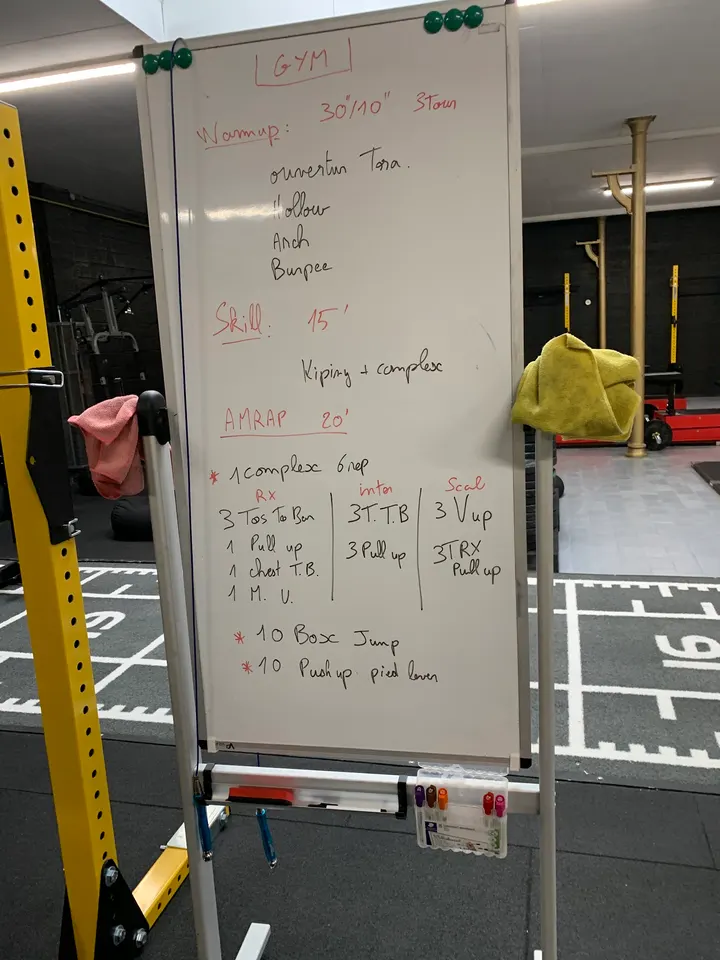 GYM
Warmup: 30"/10" 3 Tours
ouverture Tora.
Hollow
Arch
Burpee
Skill: 15'
Kiping + complex
AMRAP 20'
* 1 complex 6 rep
Rx
3 Toes To Bar
1 Pull up
1 chest T.B.
1 M. U.
inter
3 T.T.B
3 Pull up
Scal
3 V up
3 TRX
Pull up
* 10 Box Jump
* 10 Push up pied lever